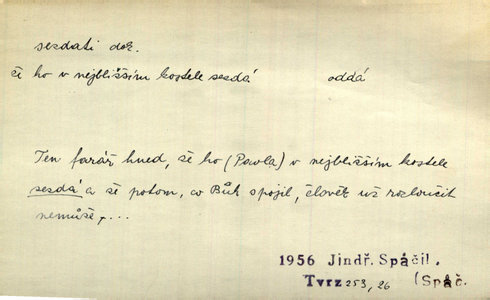 sezdati dok.
že ho v nejbližším kostele sezdá oddá
Ten farář hned, že ho (Pavla) v nejbližším kostele
sezdá a že potom, co Bůh spojil, člověk už rozloučit
nemůže,...
1956 Jindř. Spáčil.
Tvrz 253, 26 (Spáč.